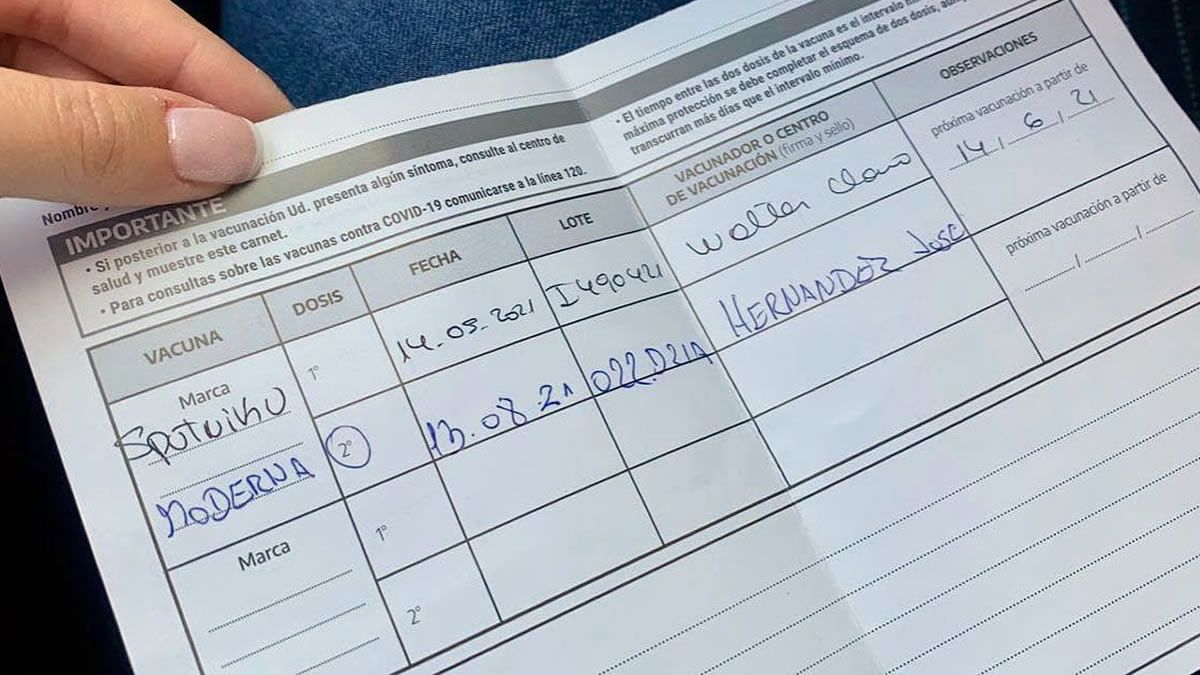 • El tiempo entre las dos dosis de la vacuna es el intervalo
máxima protección se debe completar el esquema de dos dosis,
transcurran más días que el intervalo mínimo.
Nombre
IMPORTANTE
• Si posterior a la vacunación Ud. presenta algún síntoma, consulte al centro de
salud y muestre este carnet.
• Para consultas sobre las vacunas contra COVID-19 comunicarse a la línea 120.
VACUNA
DOSIS
FECHA
LOTE
VACUNADOR O CENTRO
DE VACUNACIÓN (firma y sello)
OBSERVACIONES
Marca
Sputnik V
1°
14.05.2021
I490421
Walter
próxima vacunación a partir de
14/6/21
MODERNA
2°
13.08.21
022D21A
HERNANDEZ JOSE
próxima vacunación a partir de
/ /
Marca
1°
2°